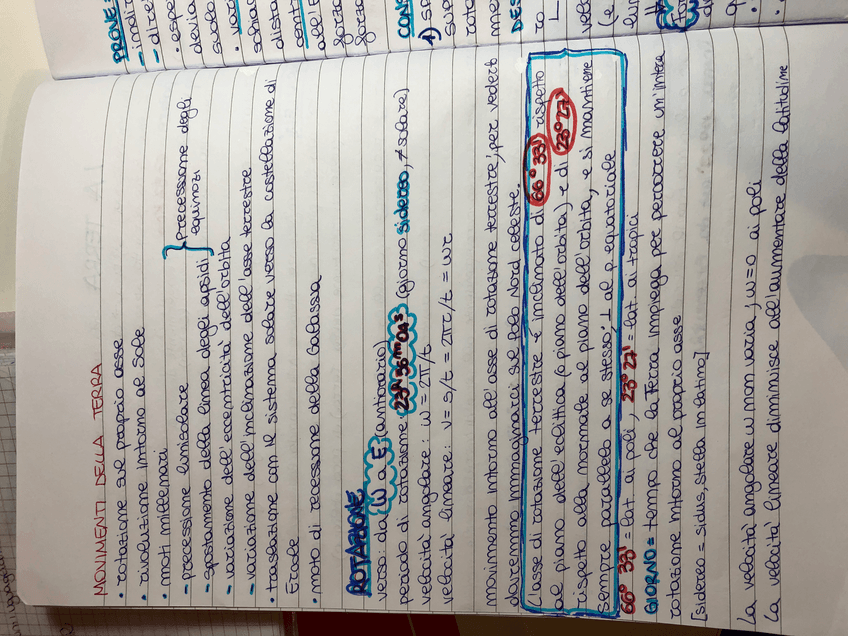 MOVIMENTI DELLA TERRA
• rotazione sul proprio asse
• rivoluzione intorno al sole
• moti millenari
- precessione lunisolare
- spostamento della linea degli apsidi } Precessione degli equinozi
- variazione dell'eccentricità dell'orbita
- variazione dell'inclinazione dell'asse terrestre
• traslazione con il sistema solare verso la costellazione di
Ercole
• moto di recessione della Galassia
ROTAZIONE
verso: da W a E (antiorario)
periodo di rotazione: 23h 56m 04s (giorno sidereo, ≠ solare)
velocità angolare: ω = 2π/t
velocità lineare: v = s/t = 2πr/t = ωr
movimento intorno all'asse di rotazione terrestre, per vederlo
dovremmo immaginarci sul Polo Nord celeste.
L'asse di rotazione terrestre è inclinato di 66° 33' rispetto
al piano dell'eclittica (o piano dell'orbita) e di 23° 27'
rispetto alla normale al piano dell'orbita, e si mantiene
sempre parallelo a se stesso, ⊥ al p. equatoriale
66° 33' = lat. ai poli, 23° 27' = lat. ai tropici
GIORNO = tempo che la Terra impiega per percorrere un'intera
rotazione intorno al proprio asse
[sidereo = sidus, stella in latino]
la velocità angolare ω non varia, ω=0 ai poli
la velocità lineare diminuisce all'aumentare della latitudine
PROVE:
CONS
1)
DES